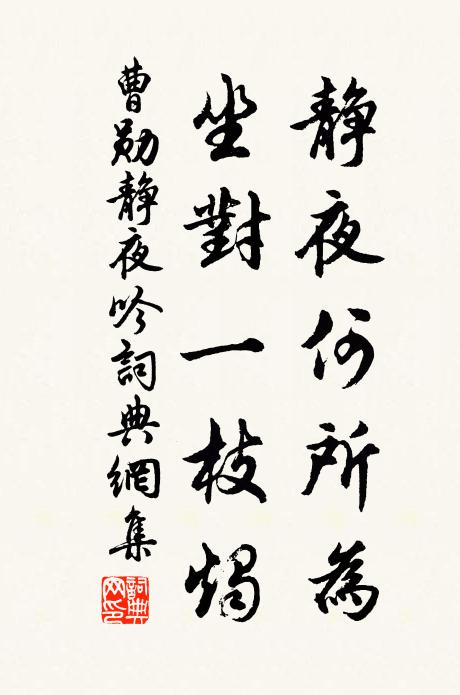 静夜何所為
坐對一枝燭
曹勛静夜吟詞典網集
詞典網印